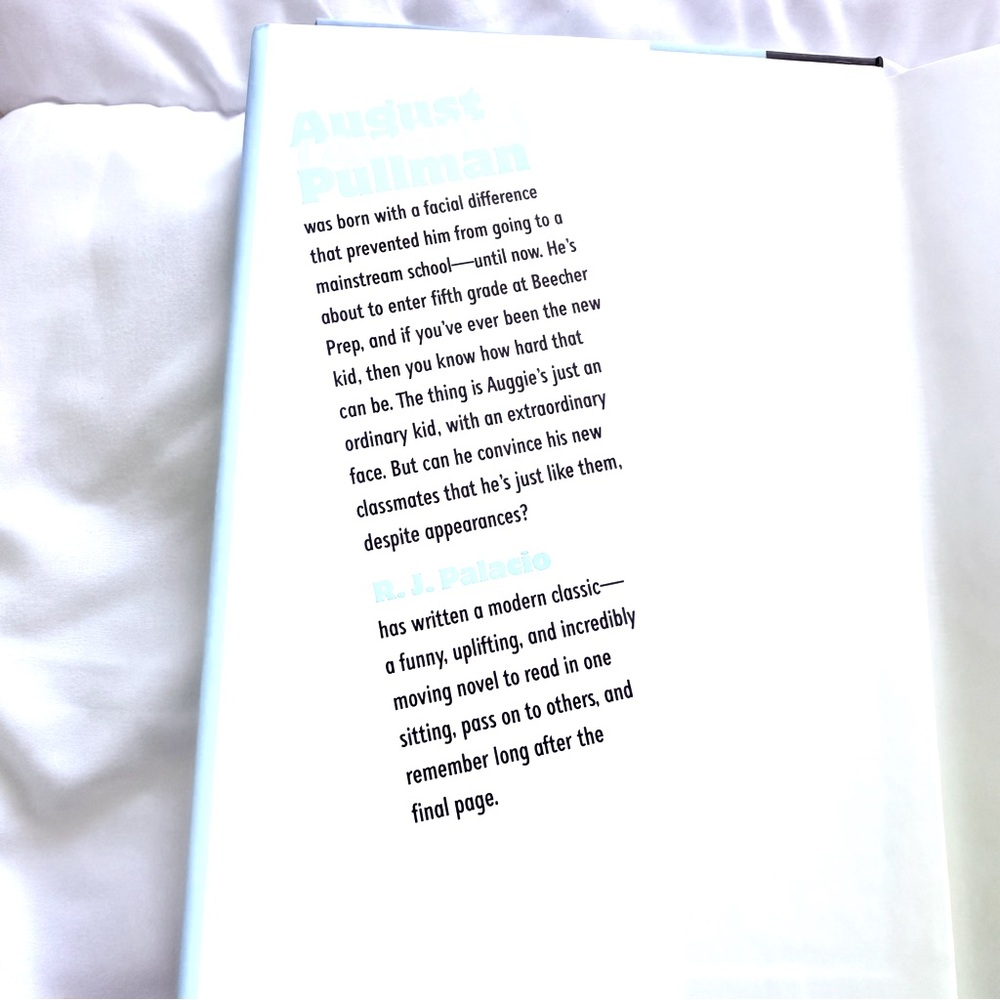 August
Pullman
was born with a facial difference
that prevented him from going to a
mainstream school—until now. He's
about to enter fifth grade at Beecher
Prep, and if you've ever been the new
kid, then you know how hard that
can be. The thing is Auggie's just an
ordinary kid, with an extraordinary
face. But can he convince his new
classmates that he's just like them,
despite appearances?
R. J. Palacio
has written a modern classic—
a funny, uplifting, and incredibly
moving novel to read in one
sitting, pass on to others, and
remember long after the
final page.